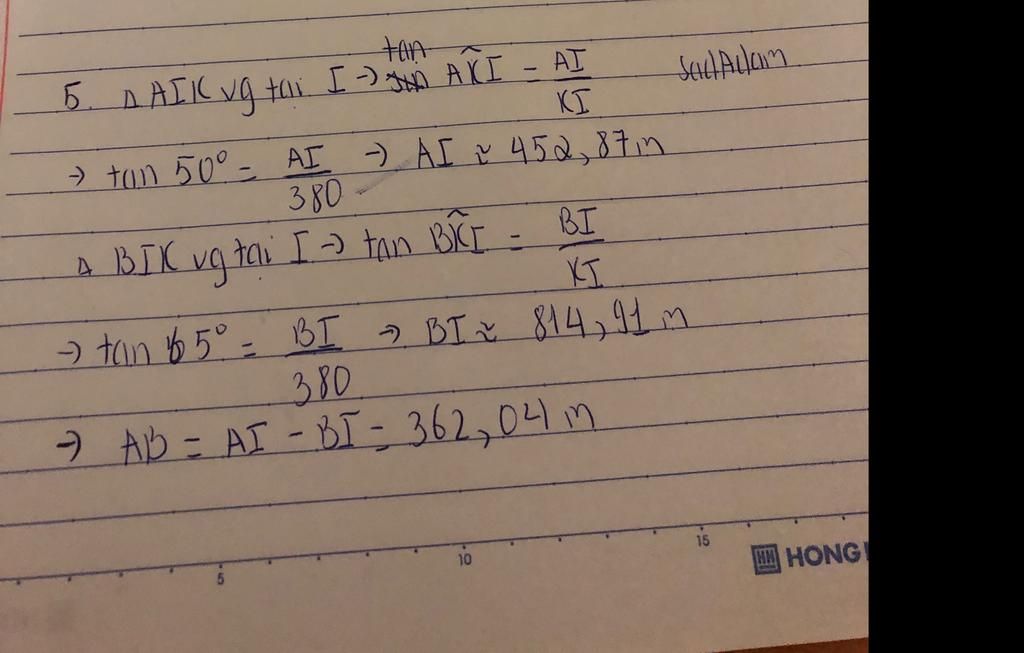 5. Δ AIK vg tại I → tan AK̂I = AI/KI
→ tan 50° = AI/380 → AI ≈ 452,87m
Δ BIK vg tại I → tan BK̂I = BI/KI
→ tan 65° = BI/380 → BI ≈ 814,91 m
→ AB = AI - BI = 362,04 m
5 10 15
HONG